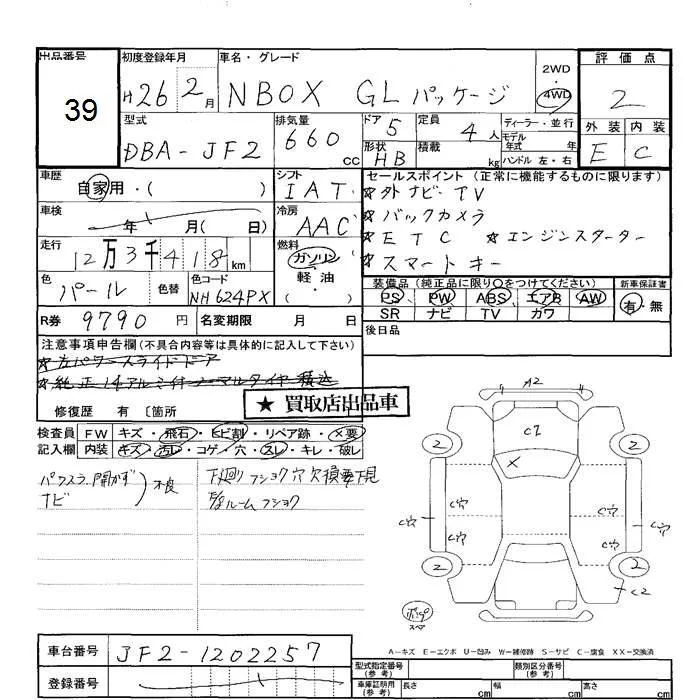 出品番号 初度登録年月 車名・グレード 2WD 評価点
39 H26 2月 NBOX GLパッケージ 4WD 2
型式 排気量 ドア 5 定員 4人 ディーラー・並行 外装 内装
DBA-JF2 660cc 形状 HB 積載 kg モデル年式 年 E C
ハンドル 左・右
車歴 シフト セールスポイント (正常に機能するものに限ります)
自家用・( ) IAT ★外ナビ・TV
車検 冷房 ★バックカメラ
年 月( 日) AAC ★ETC ★エンジンスターター
走行 燃料 ★スマートキー
12万3千418km ガソリン・軽油・
色 色替 色コード 装備品 (純正品に限り○をつけてください) 新車保証書
パール NH624PX PS PW ABS エアB AW 有・無
SR ナビ TV カワ
R券 9790円 名変期限 月 日 後日品
注意事項申告欄(不具合内容等は具体的に記入して下さい)
★左パワースライドドア
★純正14アルミ付ノーマルタイヤ積込
修復歴 有 〔箇所
★ 買取店出品車
検査員 FW キズ・飛石・ヒビ割・リペア跡・X要
記入欄 内装 キズ・汚レ・コゲ・穴・スレ・キレ・破レ
パワスラ開かず 不良
ナビ
下廻りフショク穴欠損要下見
ルームフショク
A2
C2
X
2 2
C穴 C穴
C穴 C穴
C穴 C穴
2 2
C2
スペア
A-キズ E-エクボ U-凹み W-補修跡 S-サビ C-腐食 XX-交換済
車台番号 JF2-1202257
登録番号
型式指定番号(参考) 類別区分番号(参考)
車庫証明用(参考) 長さ cm 幅 cm 高さ cm